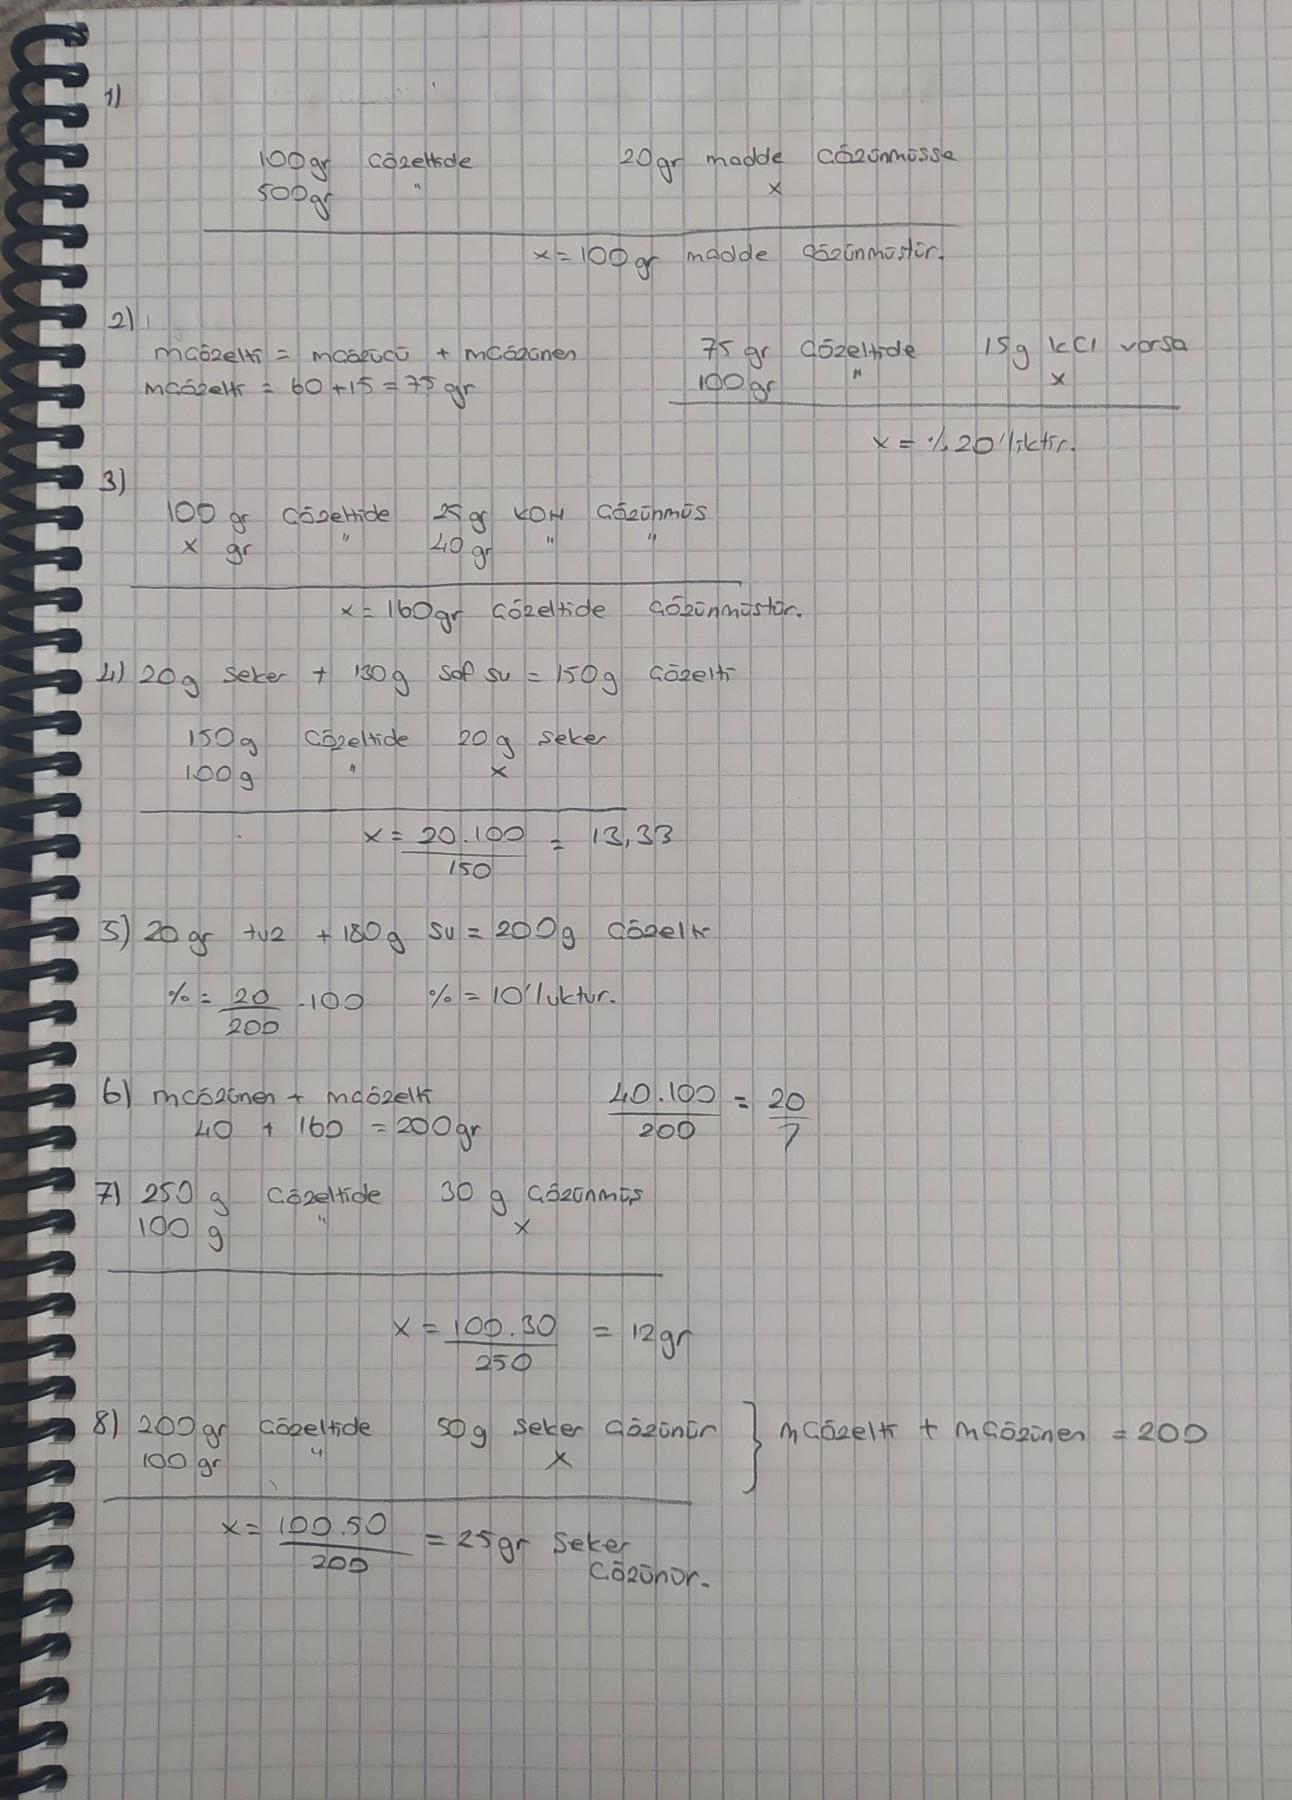 1)
100gr Çözeltide 20gr madde Çözünmüsse
500gr " x
x = 100gr madde Çözünmüstür.
2)
mÇözelti = mÇözücü + mÇözünen 75 gr Çözeltide 15g kCl varsa
mÇözelti = 60 + 15 = 75 gr 100gr " x
x = %20'liktir.
3)
100 gr Çözeltide 25gr KOH Çözünmüs
x gr " 40 gr " "
x = 160gr Çözeltide Çözünmüstür.
4) 20g seker + 130g saf su = 150g Çözelti
150g Çözeltide 20g seker
100g " x
x = 20.100 = 13,33
150
5) 20gr tuz + 180g su = 200g Çözelti
% = 20 .100 % = 10'luktur.
200
6) mÇözünen + mÇözelti 40.100 = 20
40 + 160 = 200gr 200 7
7) 250 g Çözeltide 30 g Çözünmüş
100 g " x
x = 100.30 = 12gr
250
8) 200gr Çözeltide 50g Seker Çözünür } mÇözelti + mÇözünen = 200
100gr " x
x = 100.50 = 25gr Seker
200 Çözünür.